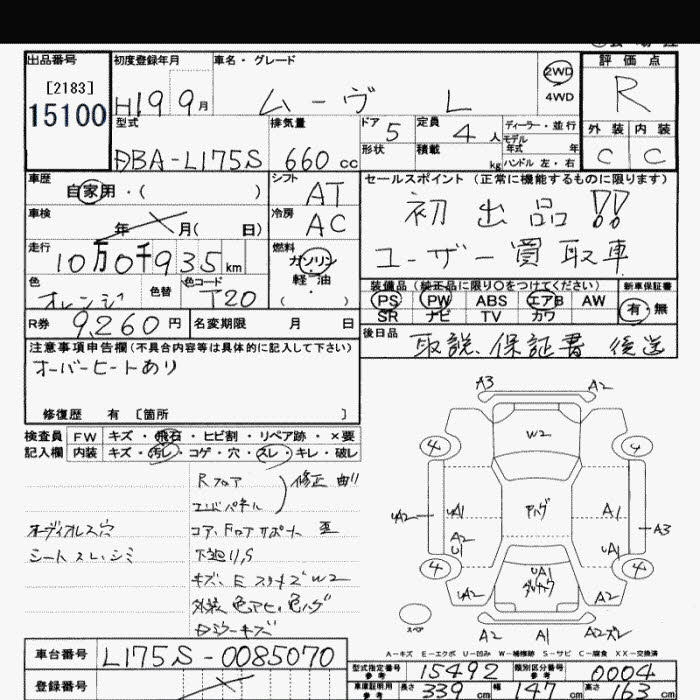 出品番号 初度登録年月 車名・グレード 評価点
[2183]
15100
H19 9月 ムーヴ L 2WD 4WD R
型式 排気量 ドア 定員 ディーラー・並行 外装 内装
DBA-L175S 660cc 5 4人 モデル年式 年
形状 積載 kg ハンドル 左・右 C C
車歴 シフト セールスポイント(正常に機能するものに限ります)
自家用・( ) AT 初出品!!
車検 冷房
年 月( 日) AC ユーザー買取車
走行 燃料
10万0千935km ガソリン 軽油 ( )
色 色替 色コード 装備品(純正品に限り○をつけてください) 新車保証書
オレンジ T20 PS PW ABS エアB AW 有・無
SR ナビ TV カワ
R券 9,260円 名変期限 月 日 後日品
取説、保証書 後送
注意事項申告欄(不具合内容等は具体的に記入して下さい)
オーバーヒートあり
修復歴 有 [箇所 ]
検査員 FW キズ・飛石・ヒビ割・リペア跡・×要
記入欄 内装 キズ・汚レ・コゲ・穴・スレ・キレ・破レ
Rフロア
エンドパネル 修正 曲り
オーディオレス穴 コア、Fロアサポート 歪
シートスレ、シミ 下廻りS
キズ、E W2
外装 色アセ、色ハゲ
ミラーキズ
A3 A2
W2
4 4
A2 UA1 アハゲ A1 A3
A2 U1 UA1
4 4
UA2 UA1 A2
スペア A2 A1 A2ズレ
A-キズ E-エクボ U-凹み W-補修跡 S-サビ C-腐食 XX-交換済
車台番号 L175S-0085070
型式指定番号 参考 15492 類別区分番号 参考 0004
登録番号 車庫証明用 参考 長さ 339cm 幅 147cm 高さ 163cm